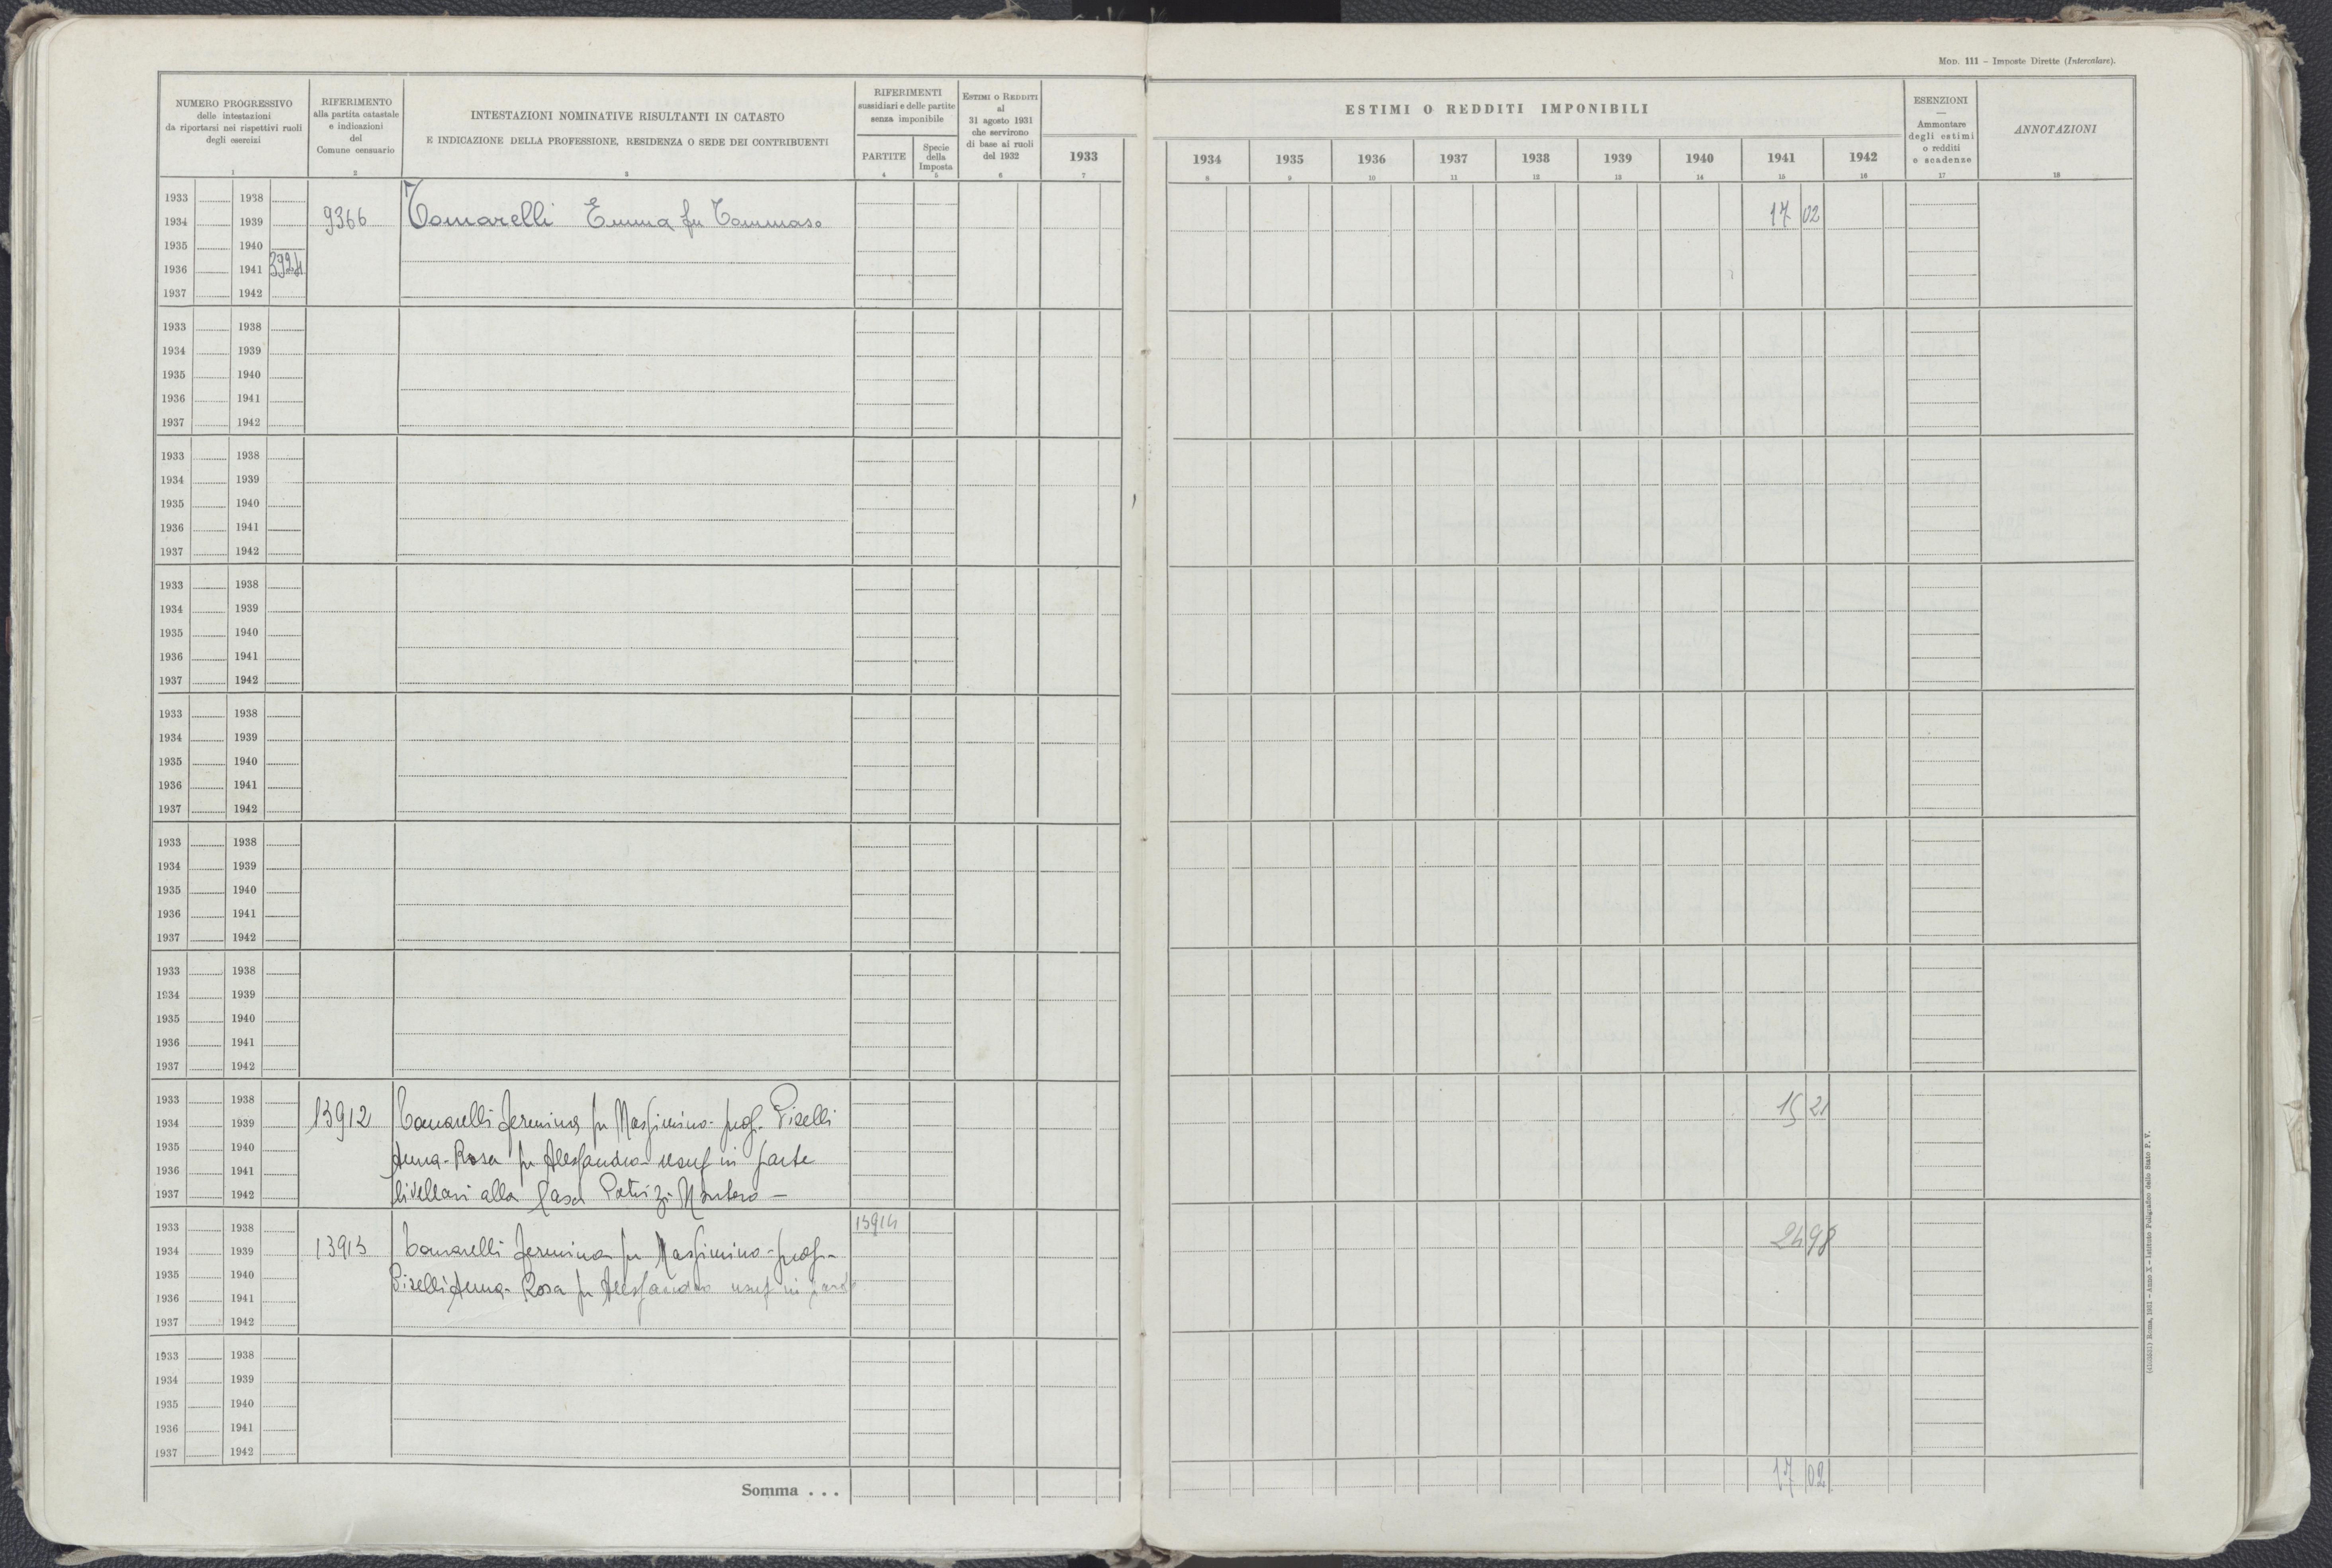 Mod. 111 – Imposte Dirette (Intercalare).
NUMERO PROGRESSIVO
delle intestazioni
da riportarsi nei rispettivi ruoli
degli esercizi
1
RIFERIMENTO
alla partita catastale
e indicazioni
del
Comune censuario
2
INTESTAZIONI NOMINATIVE RISULTANTI IN CATASTO
E INDICAZIONE DELLA PROFESSIONE, RESIDENZA O SEDE DEI CONTRIBUENTI
3
RIFERIMENTI
sussidiari e delle partite
senza imponibile
PARTITE
4
Specie
della
Imposta
5
Estimi o Redditi
al
31 agosto 1931
che servirono
di base ai ruoli
del 1932
6
1933
7
ESTIMI O REDDITI IMPONIBILI
1934 1935 1936 1937 1938 1939 1940 1941 1942
8 9 10 11 12 13 14 15 16
ESENZIONI
—
Ammontare
degli estimi
o redditi
e scadenze
17
ANNOTAZIONI
18
1933 1938
1934 1939 9366 Tomarelli Emma fu Tommaso 17 02
1935 1940
1936 1941 3924
1937 1942
1933 1938
1934 1939
1935 1940
1936 1941
1937 1942
1933 1938
1934 1939
1935 1940
1936 1941
1937 1942
1933 1938
1934 1939
1935 1940
1936 1941
1937 1942
1933 1938
1934 1939
1935 1940
1936 1941
1937 1942
1933 1938
1934 1939
1935 1940
1936 1941
1937 1942
1933 1938
1934 1939
1935 1940
1936 1941
1937 1942
1933 1938
1934 1939 13912 Tomarelli Fermina fu Massimino - prop. Piselli 15 21
1935 1940
1936 1941 Anna-Rosa fu Alessandro usuf in parte
1937 1942 livellari alla Casa Patrizi Montoro —
1933 1938 13914
1934 1939 13913 Tomarelli Fermina fu Massimino - prop - 24 98
1935 1940
1936 1941 Piselli Anna-Rosa fu Alessandro usuf in parte
1937 1942
1933 1938
1934 1939
1935 1940
1936 1941
1937 1942
Somma . . . 17 02
Roma, 1931 – Anno X – Istituto Poligrafico dello Stato P. V.